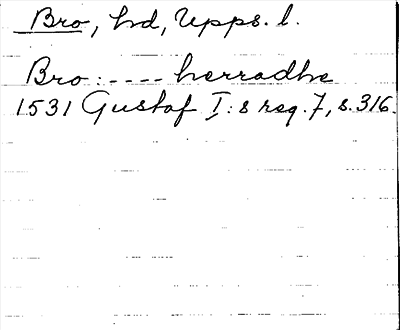 Bro, hd, Upps. l.
Bro: ---- herradhe
1531 Gustaf I:s reg. 7, s. 316.